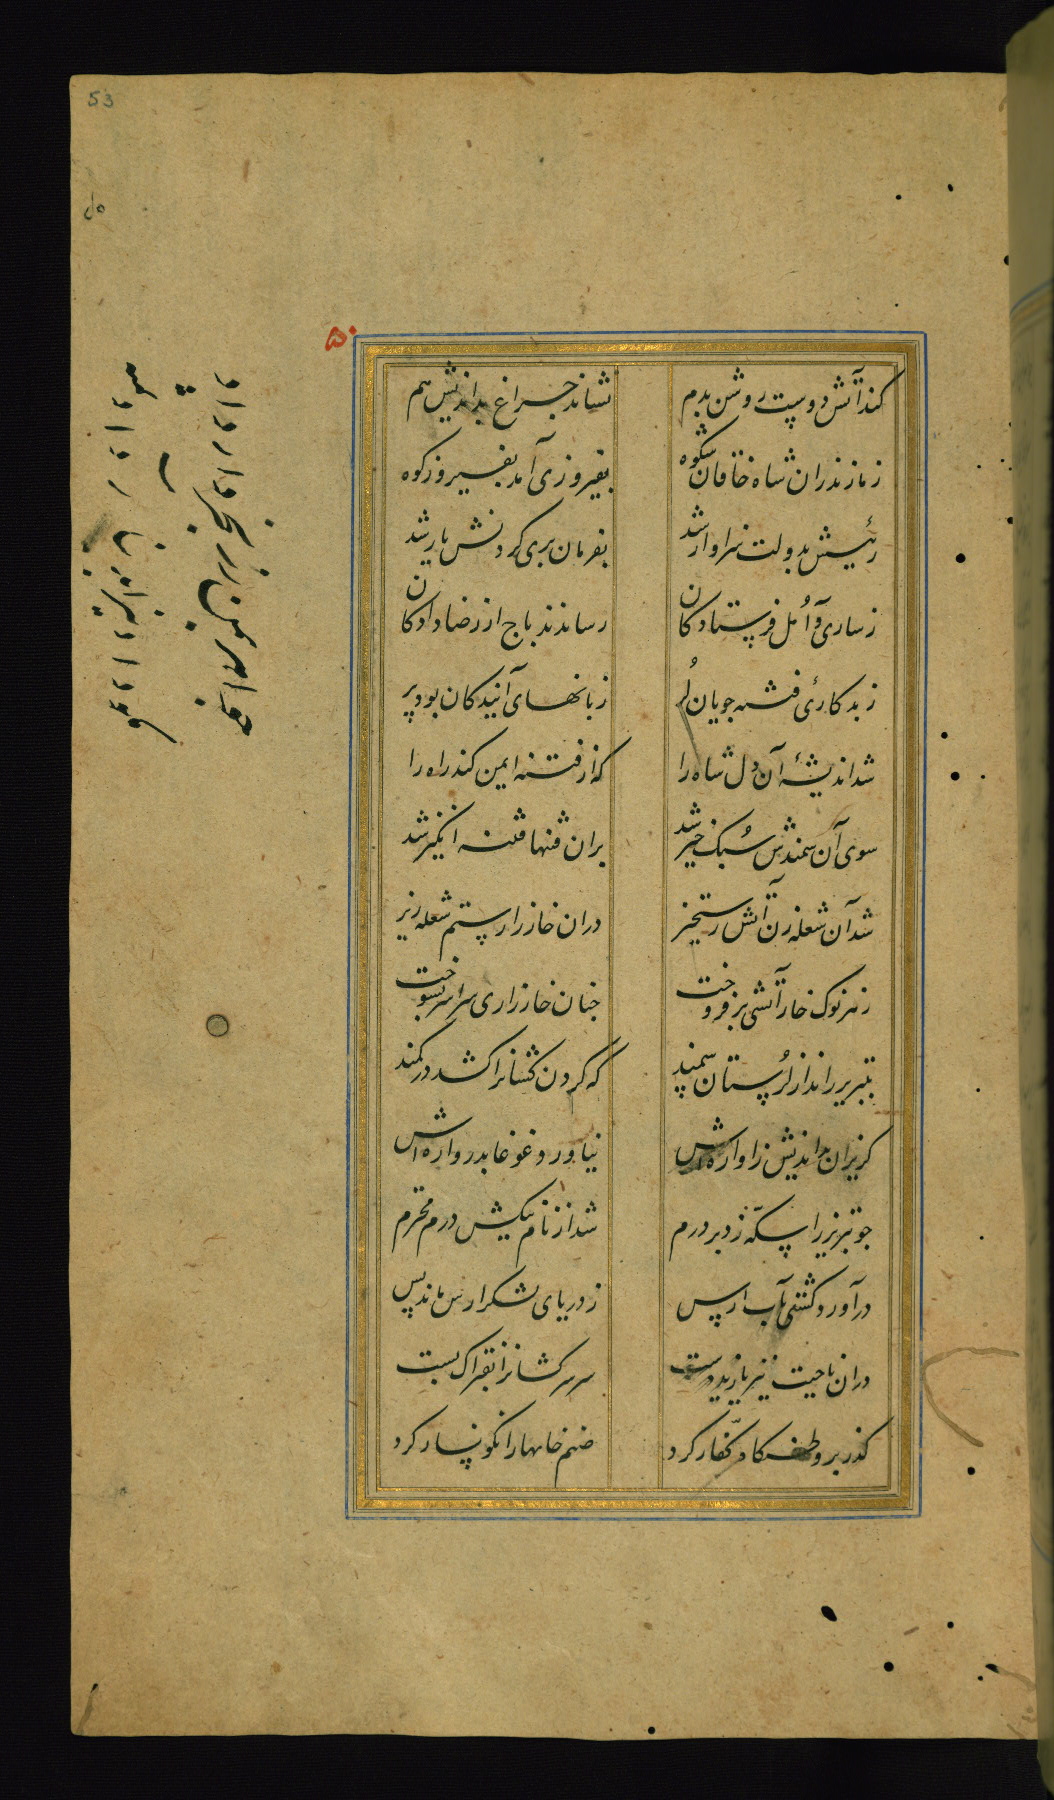 53
۵۰
کند آتش دوست روشن بدم نشاند چراغ بداندیش هم
ز مازندران شاه خاقان شکوه بفیروزی آمد بفیروزکوه
رئیسش بدولت سزاوار شد بفرمان بری کردنش یار شد
ز ساری و آمُل فرستادکان رساندند باج از رضا دادکان
ز بدکارئ فتنه جویان لُر زبانهای آیندکان بود پر
شد اندیشهٔ آن دل شاه را که از فتنه ایمن کند راه را
سوی آن سمندش سُبک خیز شد بران فتنها فتنه انکیز شد
شد آن شعله زن آتش رستخیز دران خارزار ستم شعله ریز
ز هر نوک خار آتشی برفروخت چنان خارزاری سراسر بسوخت
بتبریز راند از لُرستان سمند که کردن کشانرا کشد در کمند
کریزان بداندیش ز اوازه‌اش نیاورد غوغا بدروازه‌اش
چو تبریز را سکّه زد بر درم شد از نام نیکش درم محترم
درآورد کشتی بآب ارس ز دریای لشکر ارس ماند پس
دران ناحیت نیز یازید دست سر سرکشانرا بفتراک بست
کذر بر کفّار کرد صنم خانها را نکونسار کرد